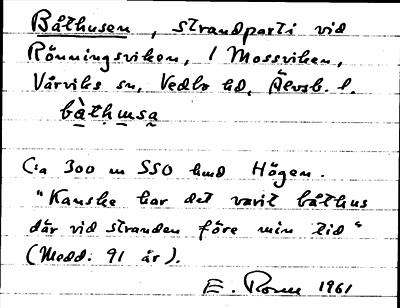 Båthusen, strandparti vid
Rönningsviken, / Mossviken,
Vårviks sn, Vedbo hd, Älvsb. l.
bàtḥu̲msa̰
Ca 300 m SSO hmd Högen.
"Kanske har det varit båthus
där vid stranden före min tid"
(Medd. 91 år).
E. 1961